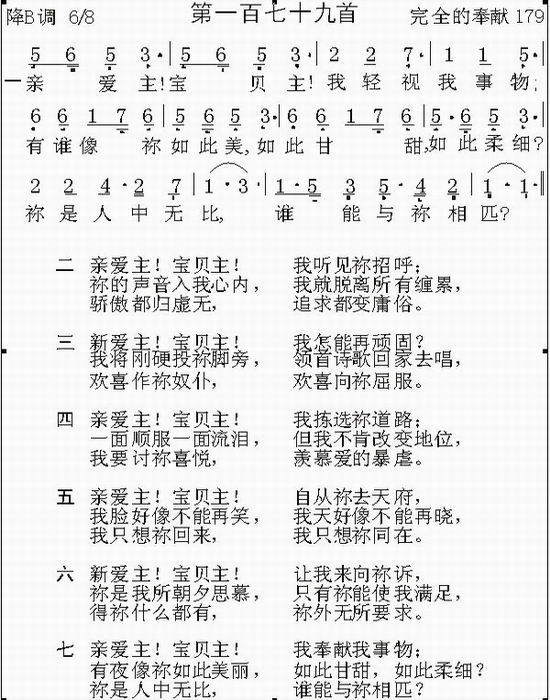 降B调 6/8 第一百七十九首 完全的奉献 179
5 6 5 3·|5 6 5 3·|2 2 7·|1 1 5·|
一亲 爱 主!宝 贝 主!我 轻 视 我 事 物;
6 6 1 7 6|5 6 5 3·|6 6 1 7 6|5·6 5 3|
有 谁 像 祢 如 此 美,如 此 甘 甜,如 此 柔 细?
2 2 4·2 7|1·3·|1·5 3 5·4 2|1·1·‖
祢 是 人 中 无 比, 谁 能 与 祢 相 匹?
二 亲爱主!宝贝主! 我听见祢招呼;
祢的声音入我心内, 我就脱离所有缠累,
骄傲都归虚无, 追求都变庸俗。
三 新爱主!宝贝主! 我怎能再顽固?
我将刚硬投祢脚旁, 领首诗歌回家去唱,
欢喜作祢奴仆, 欢喜向祢屈服。
四 亲爱主!宝贝主! 我拣选祢道路;
一面顺服一面流泪, 但我不肯改变地位,
我要讨祢喜悦, 羡慕爱的暴虐。
五 亲爱主!宝贝主! 自从祢去天府,
我脸好像不能再笑, 我天好像不能再晓,
我只想祢回来, 我只想祢同在。
六 新爱主!宝贝主! 让我来向祢诉,
祢是我所朝夕思慕, 只有祢能使我满足,
得祢什么都有, 祢外无所要求。
七 亲爱主!宝贝主! 我奉献我事物;
有夜像祢如此美丽, 如此甘甜, 如此柔细?
祢是人中无比, 谁能与祢相匹?